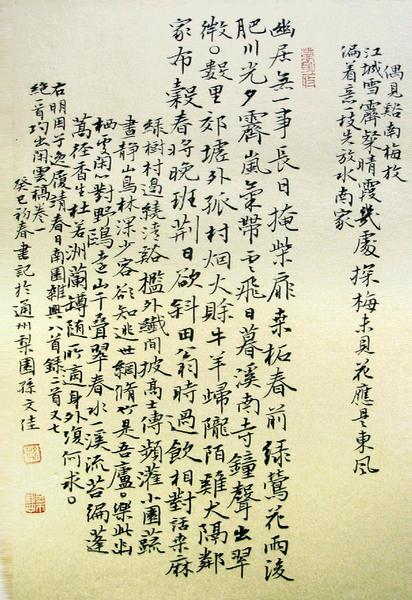 偶見谿南梅放
江城雪霽聚晴霞幾處探梅未見花應是東風
偏着意一枝先放水南家
幽居無一事長日掩柴扉桑柘春前綠鶯花雨後
肥川光夕霽嵐氣帶雲飛日暮溪南寺鐘聲出翠
微。數里郊墟外孤村烟火賒牛羊歸隴陌雞犬隔鄰
家布穀春將晚班荆日欲斜田翁時過飲相對話桑麻
綠樹村邊繞清谿檻外間披高士傳頻灌小園蔬
晝靜山鳥林深少客欲知逃世網脩竹是吾廬。樂此幽
棲閑對野鷗遠山千疊翠春水一溪流苔徧蓬
蒿徑香生杜若洲蘭隨所適身外復何求。
右明周子春日南園雜興八首錄二首又七
絕一首均出閑雲稿卷一
癸巳初春書記於通州梨園孫文佳